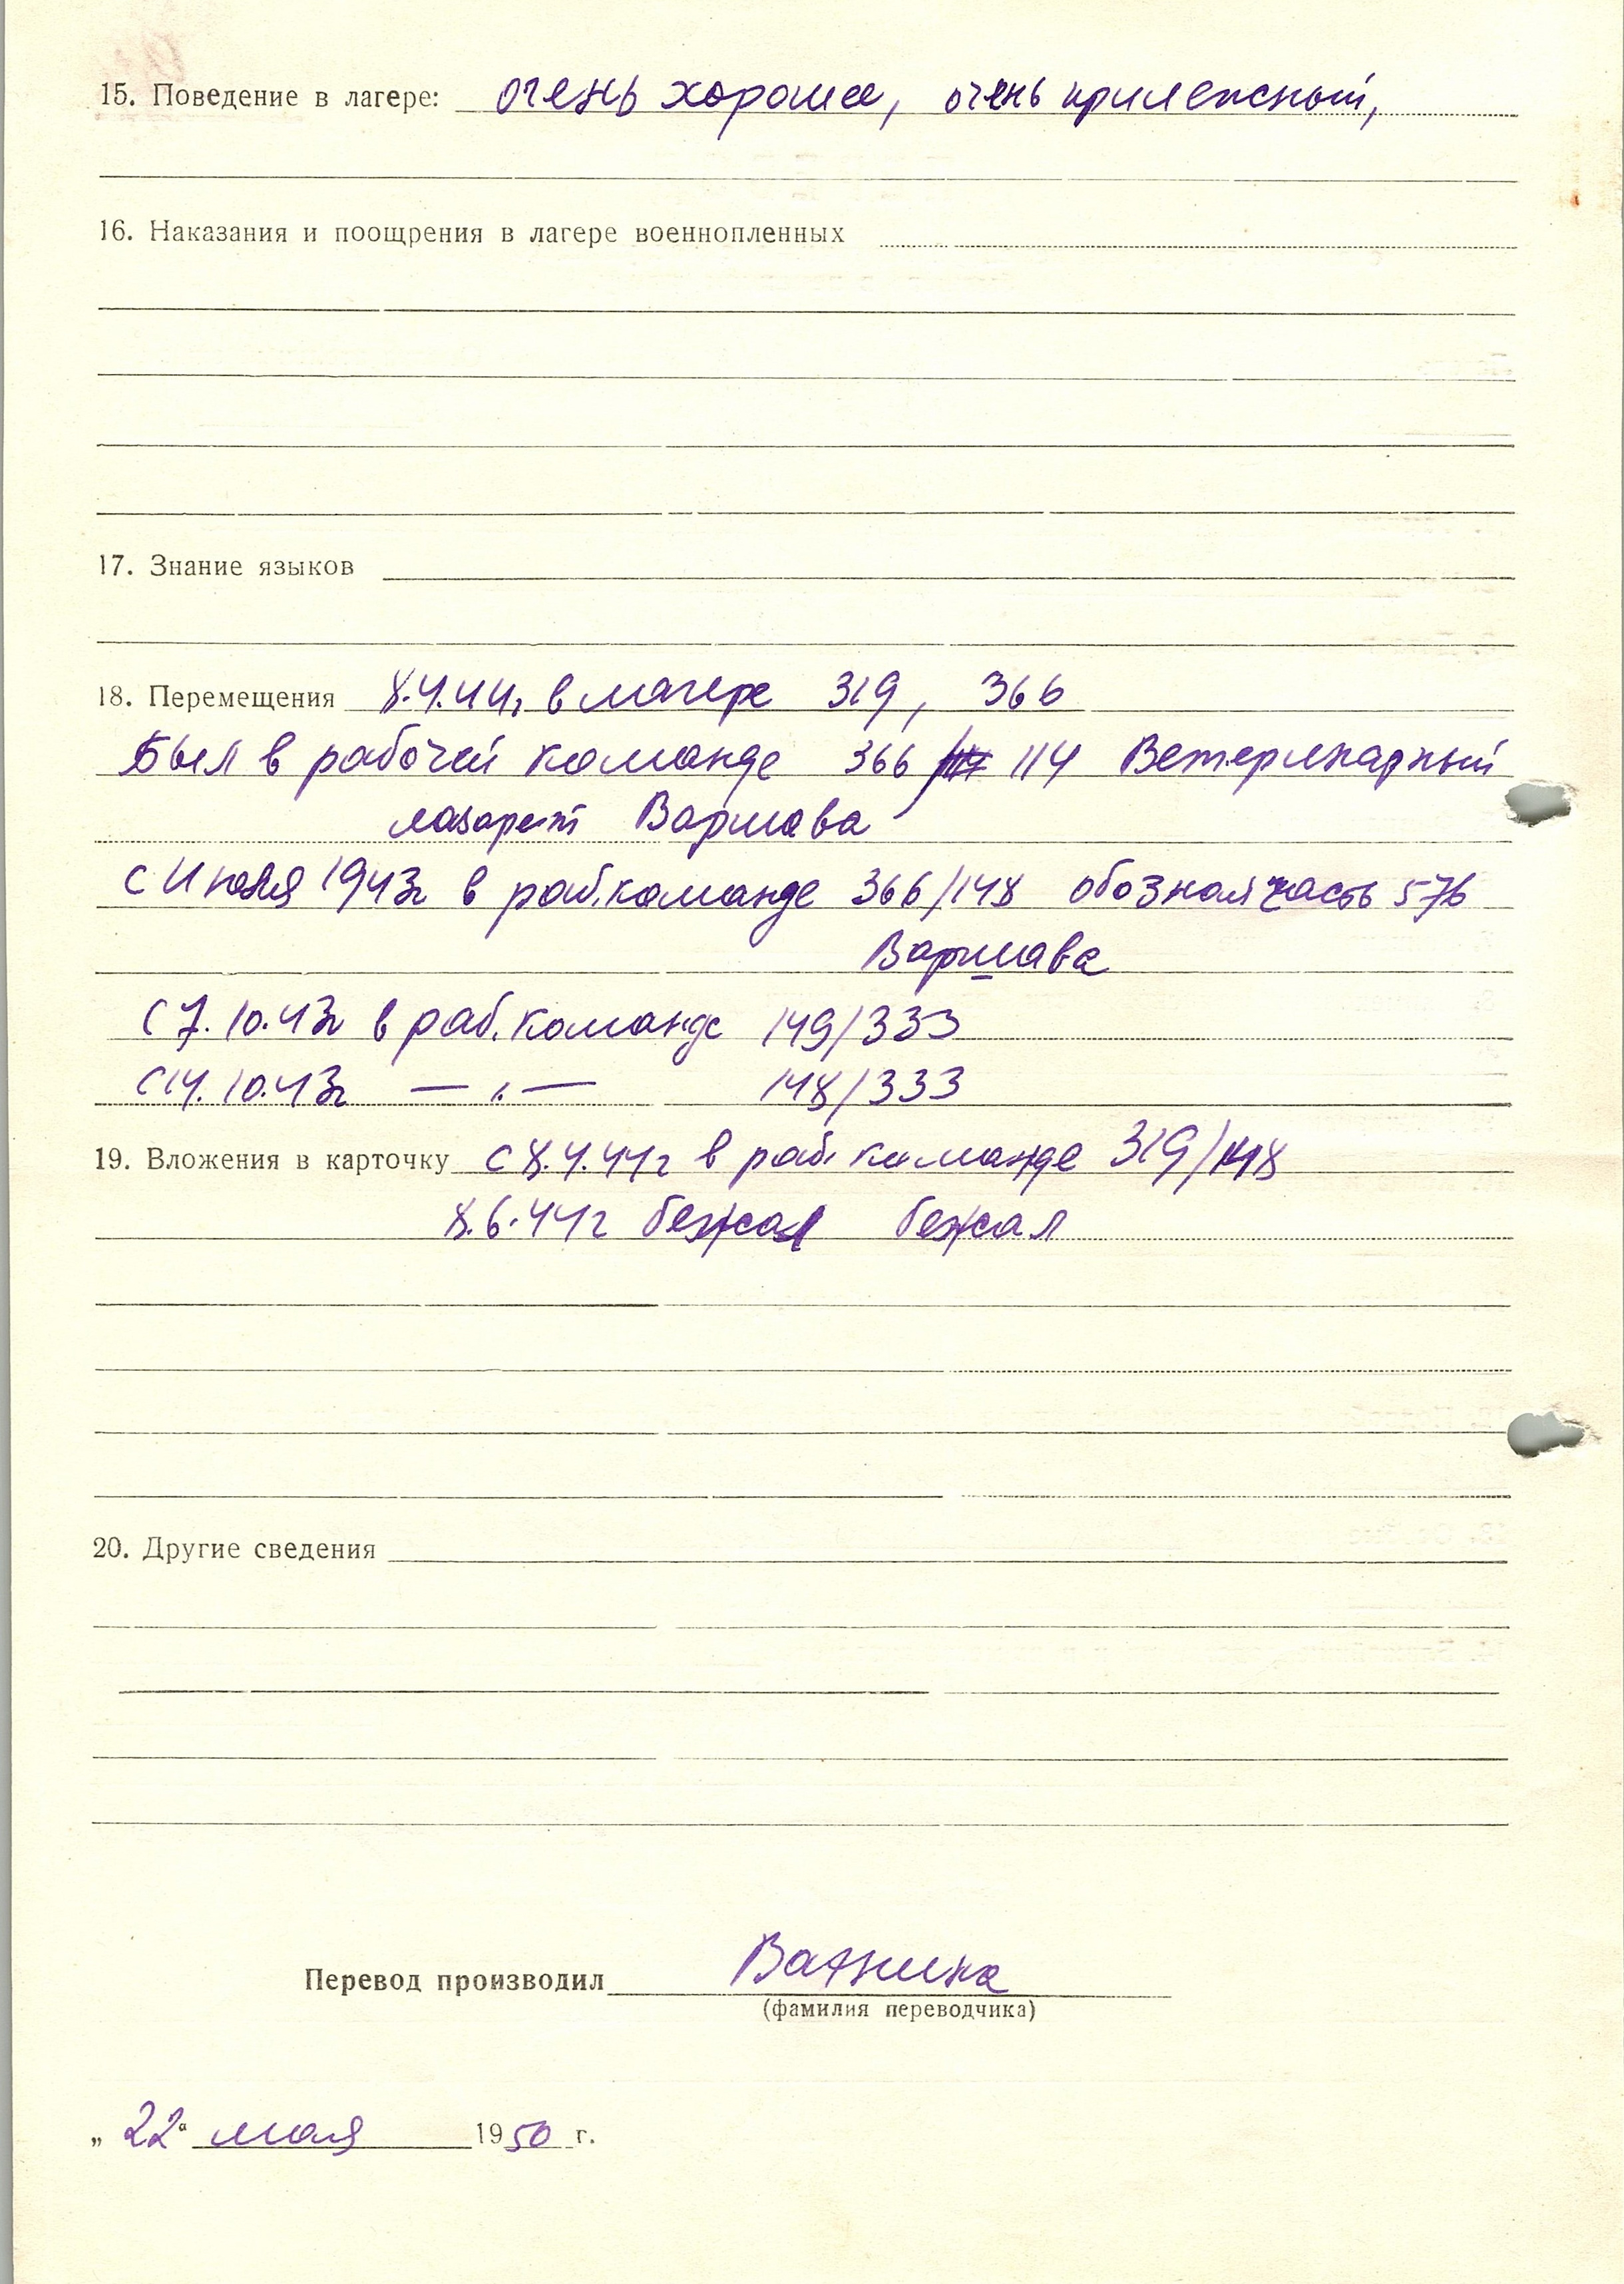 15. Поведение в лагере: очень хорошее, очень прилежный,
16. Наказания и поощрения в лагере военнопленных
17. Знание языков
18. Перемещения 8.4.44г в лагере 319, 366
Был в рабочей команде 366 / 114 Ветеринарный
лазарет Варшава
с 1943г в раб. команде 366/148 обозная часть 576
Варшава
С 7.10.43г в раб. команде 149/333
С 14.10.43г — „ — 148/333
19. Вложения в карточку с 8.4.44г в раб. команде 319/148
8.6.44г бежал бежал
20. Другие сведения
Перевод производил
(фамилия переводчика)
„ 22 “ мая 1950 г.